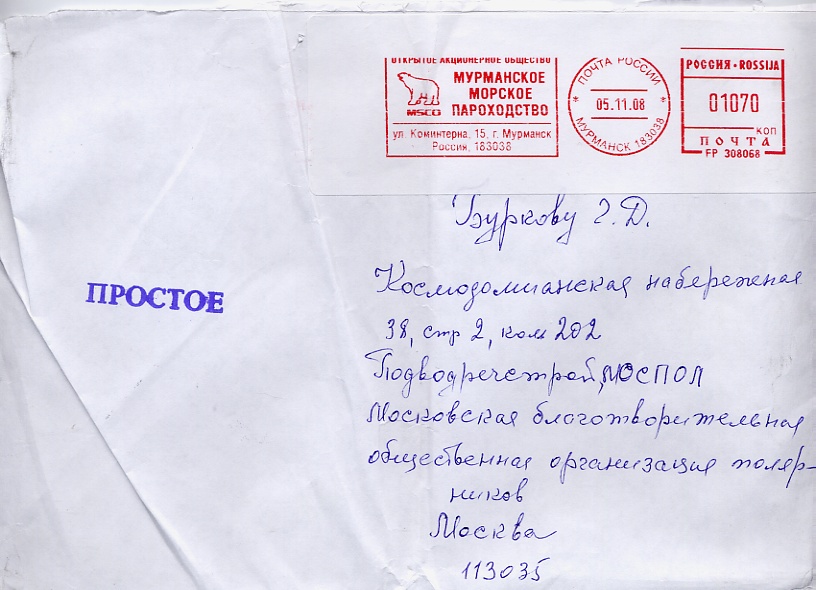 ОТКРЫТОЕ АКЦИОНЕРНОЕ ОБЩЕСТВО
МУРМАНСКОЕ
МОРСКОЕ
ПАРОХОДСТВО
MSCO
ул. Коминтерна, 15, г. Мурманск
Россия, 183038
ПОЧТА РОССИИ
05.11.08
МУРМАНСК 183038
РОССИЯ • ROSSIJA
01070
КОП
ПОЧТА
FP 308068
ПРОСТОЕ
Буркову Г.Д.
Космодомианская набережная
38, стр 2, ком 202
Подводречстрой, МОСПОЛ
Московская благотворительная
общественная организация поляр-
ников
Москва
113035